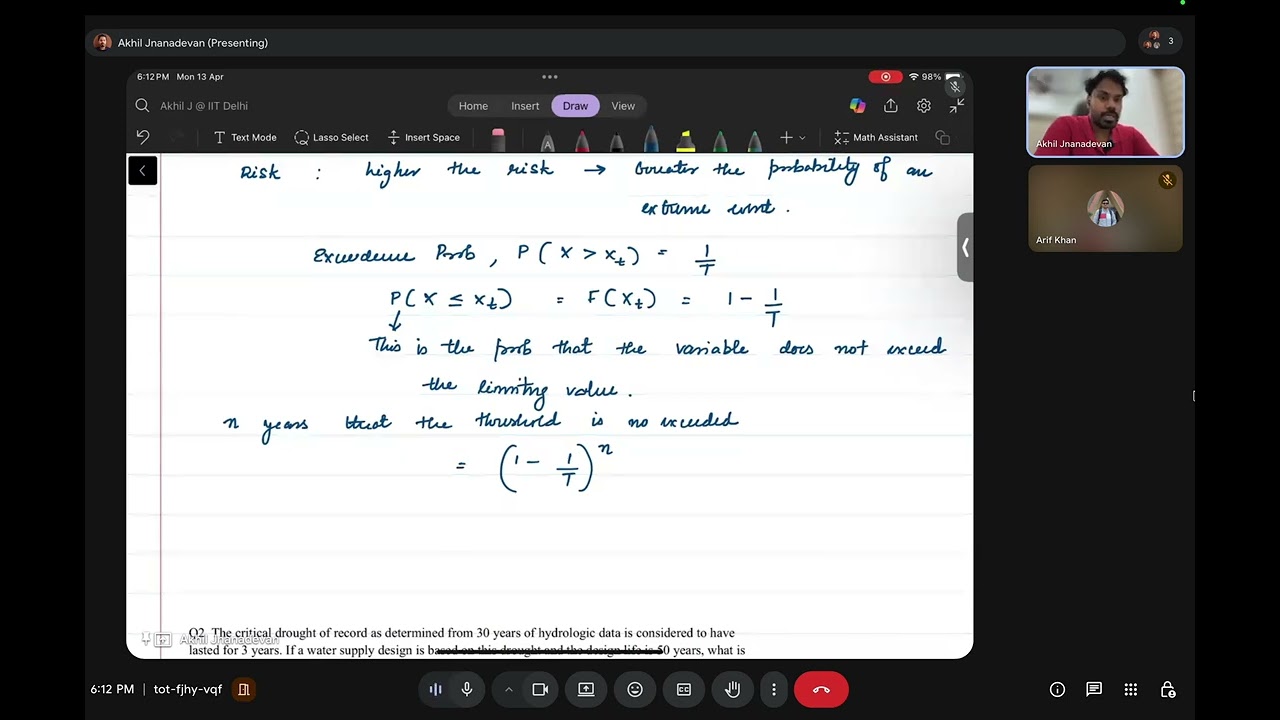 Akhil Jnanadevan (Presenting)
3
6:12 PM Mon 13 Apr
98%
Akhil J @ IIT Delhi
Home Insert Draw View
Text Mode Lasso Select Insert Space Math Assistant
Risk : higher the risk → Greater the probability of an
extreme event.
Exceedence Prob, P(X > x_t) = 1/T
P(X ≤ x_t) = F(x_t) = 1 - 1/T
This is the prob that the variable does not exceed
the limiting value.
n years that the threshold is no exceeded
= (1 - 1/T)^n
Q2. The critical drought of record as determined from 30 years of hydrologic data is considered to have
lasted for 3 years. If a water supply design is based on this drought and the design life is 50 years, what is
Akhil Jnanadevan
Akhil Jnanadevan
Arif Khan
6:12 PM | tot-fjhy-vqf